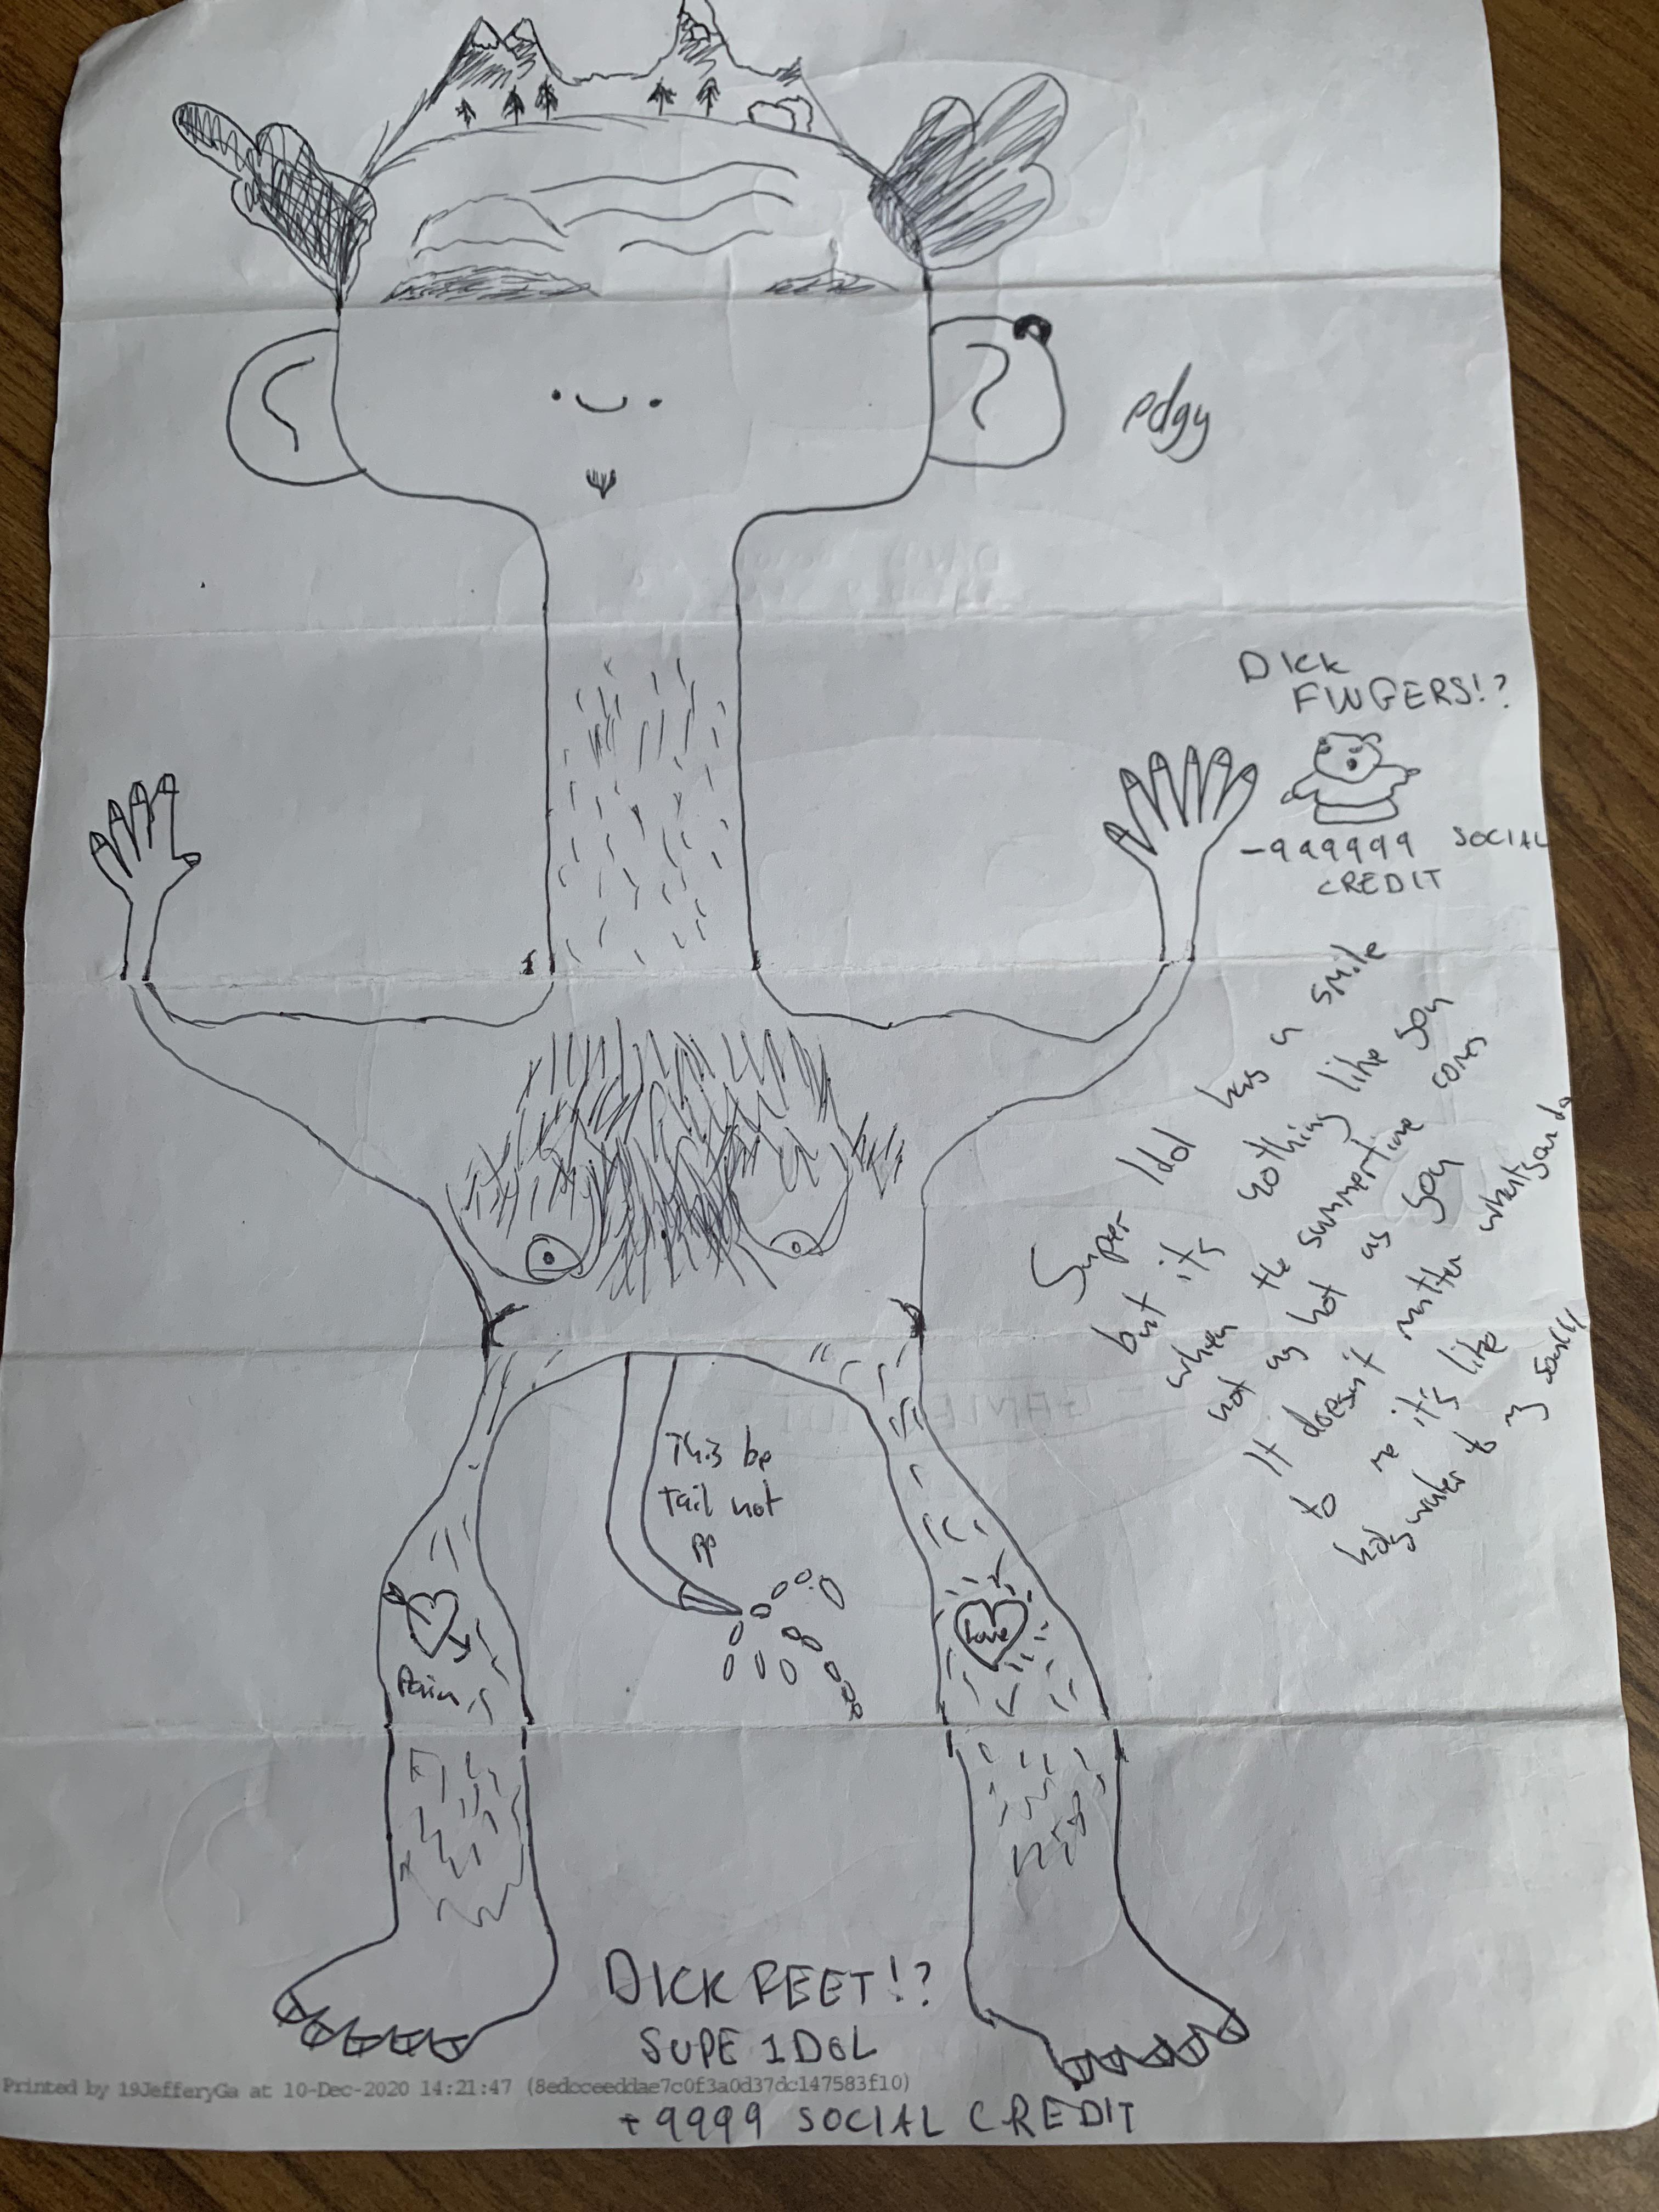 edgy
DICK
FINGERS!?
-999999 SOCIAL
CREDIT
Super Idol has a smile
but it's nothing like you
when the summertime comes
not as hot as you
It doesn't matter what you do
to me it's like
This be
tail not
PP
Pain
Love
DICK FEET!?
SUPE 1DOL
Printed by 19JefferyGa at 10-Dec-2020 14:21:47 (8edcceeddae7c0f3a0d37dc147583f10)
+9999 SOCIAL CREDIT